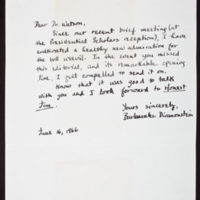 Dear Dr. Watson,
Since our recent brief meeting (at
the Presidential Scholars reception), I have
cultivated a healthy new admiration for
the boll weevil. In the event you missed
this editorial, and its remarkable opening
line, I felt compelled to send it on.
Know that it was good to talk
with you and I look forward to Honest
Jim.
Yours sincerely,
Barbaralee Diamonstein
June 16, 1966